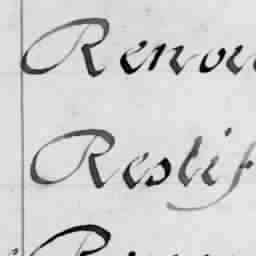 Renou
Restif